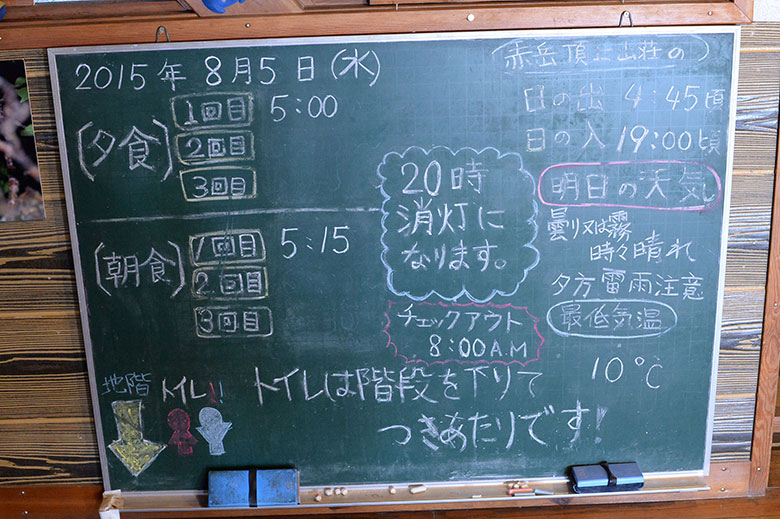 2015年 8月5日(水)
(夕食)
1回目 5:00
2回目
3回目
(朝食)
1回目 5:15
2回目
3回目
20時
消灯に
なります。
チェックアウト
8:00 A.M
(赤岳頂上山荘の)
日の出 4:45頃
日の入 19:00頃
明日の天気
曇り又は霧
時々晴れ
夕方雷雨注意
最低気温
10℃
地階 トイレ!!
トイレは階段を下りて
つきあたりです!